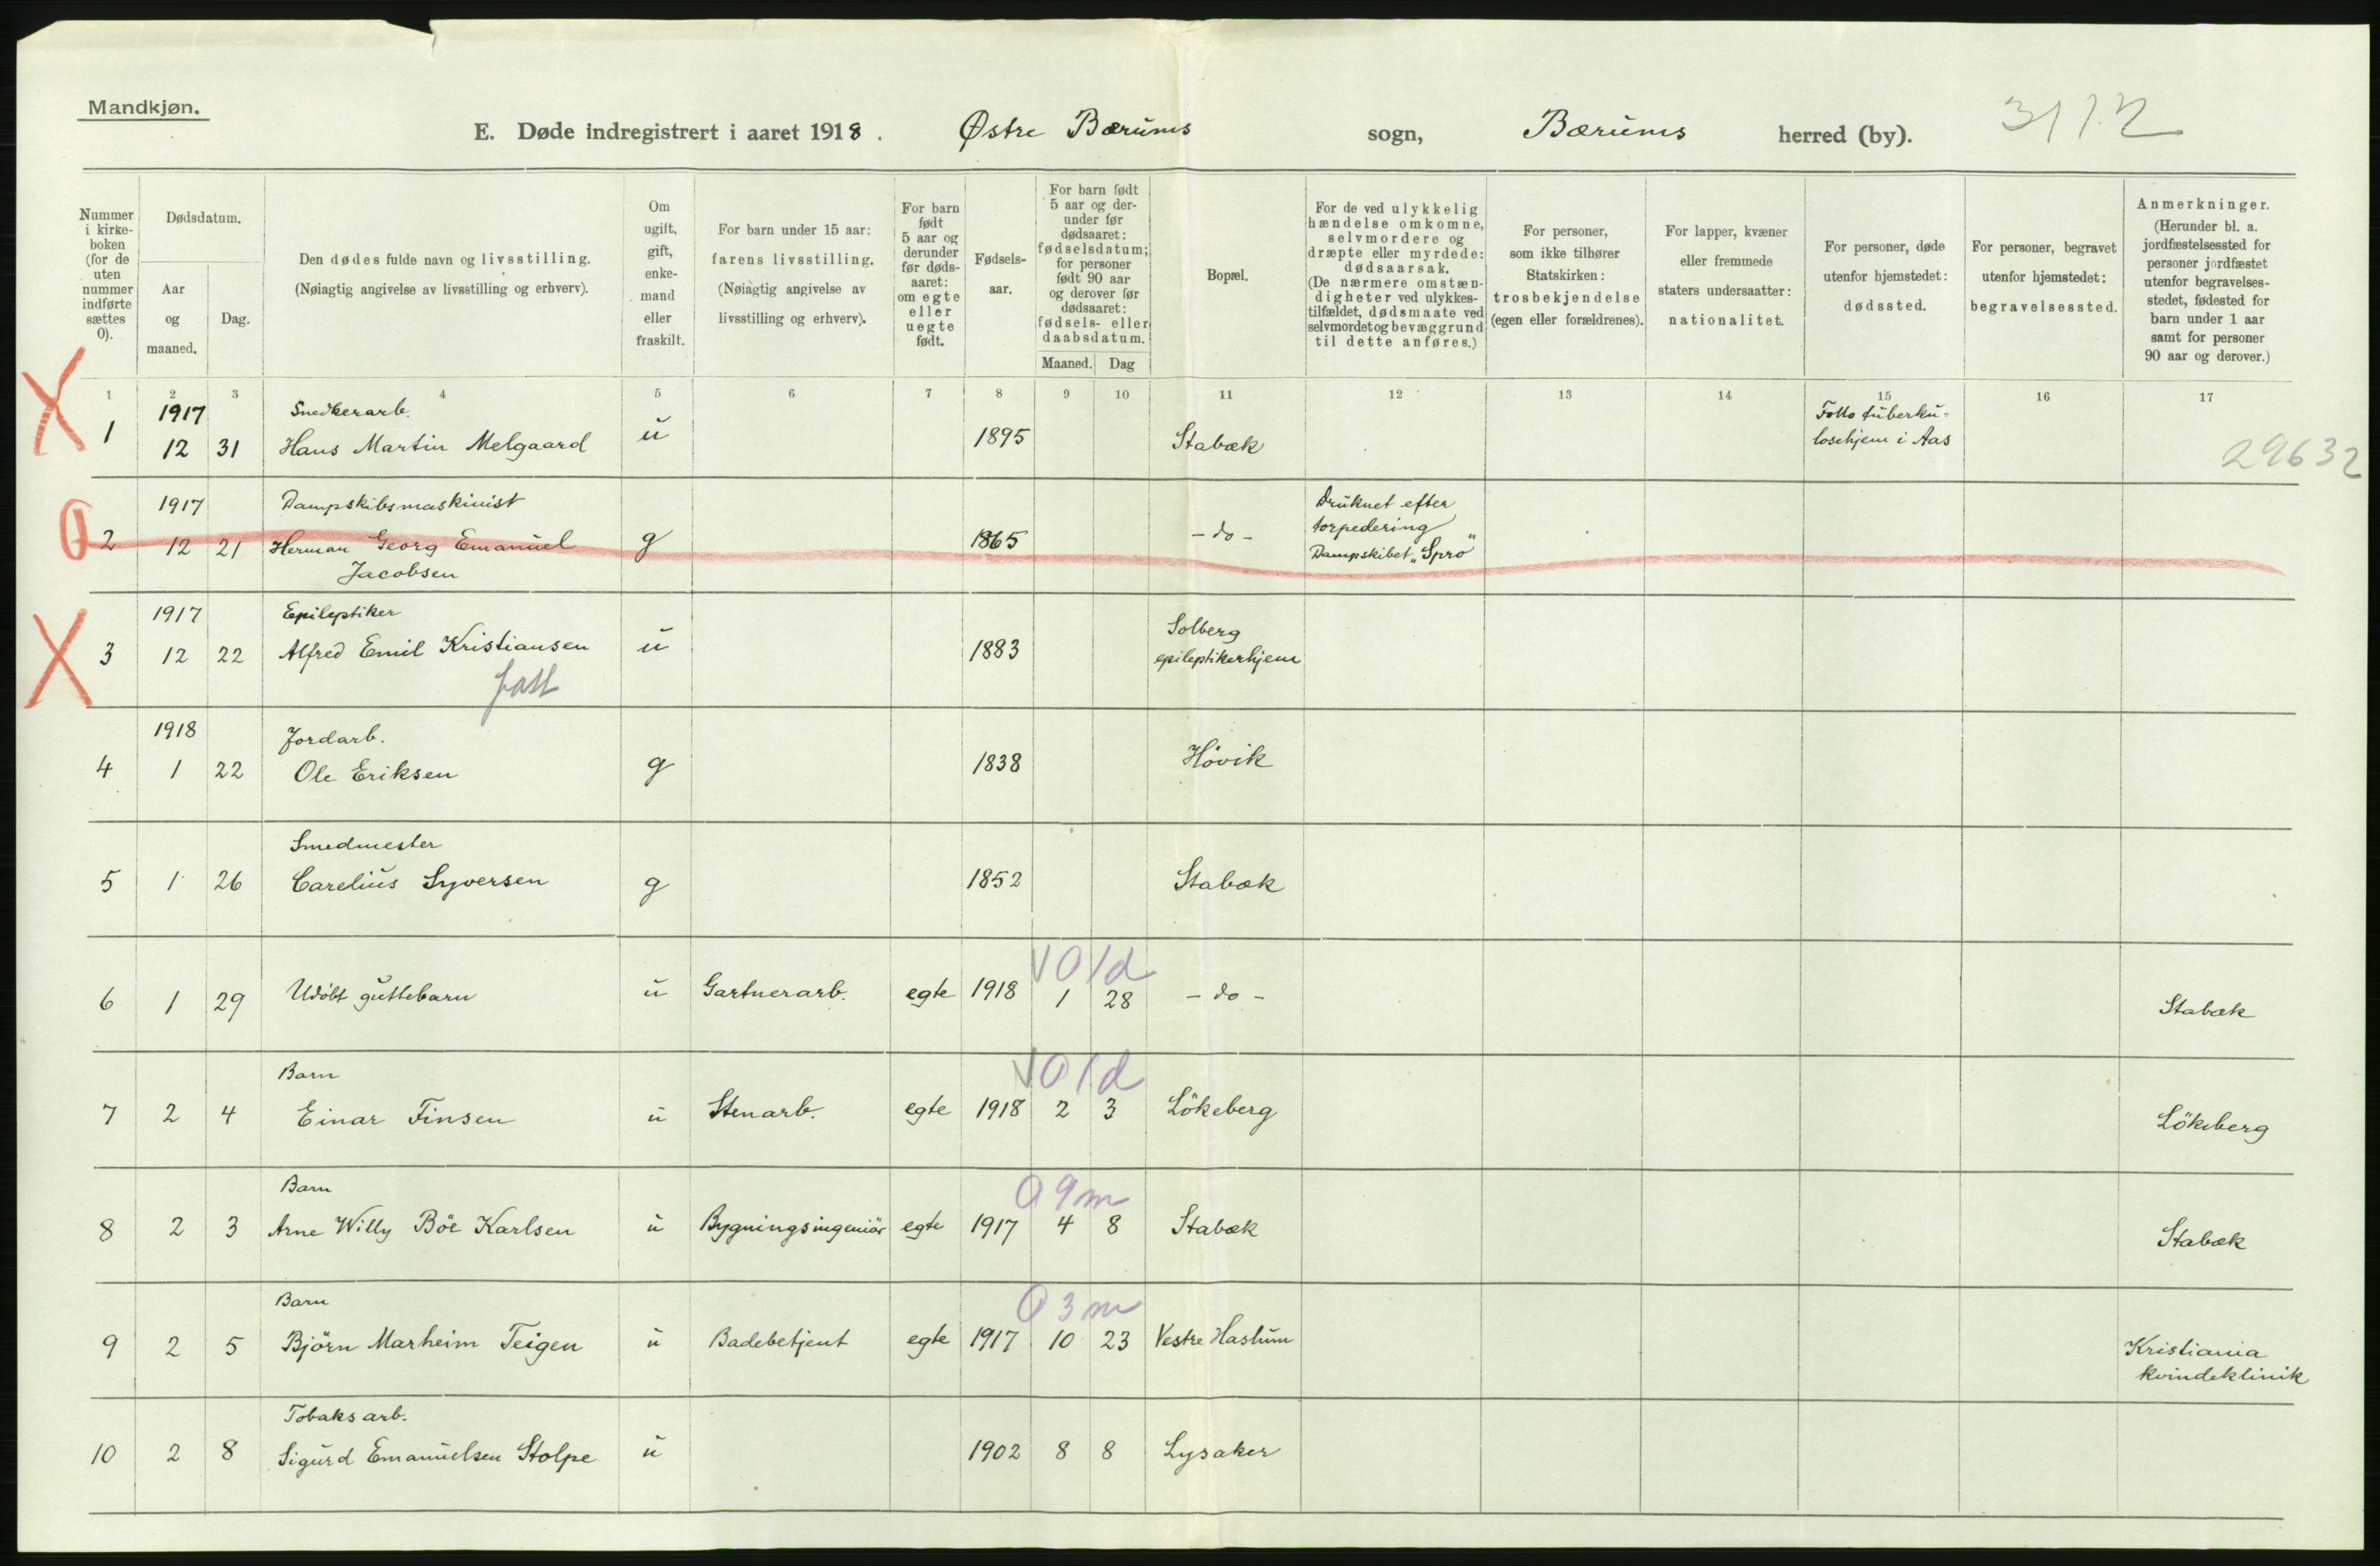 Mandkjøn.
E. Døde indregistrert i aaret 1918. Østre Bærums sogn, Bærums herred (by).
Nummer i kirke-boken (for de uten nummer indførte sættes 0).
Dødsdatum.
Aar og maaned.
Dag.
Den dødes fulde navn og livsstilling.
(Nøiagtig angivelse av livsstilling og erhverv).
Om ugift, gift, enke-mand eller fraskilt.
For barn under 15 aar: farens livsstilling. (Nøiagtig angivelse av livsstilling og erhverv).
For barn født 5 aar og derunder før døds-aaret: om egte eller uegte født.
Fødsels-aar.
For barn født 5 aar og der-under før dødsaaret: fødselsdatum; for personer født 90 aar og derover før dødsaaret: fødsels- eller daabsdatum.
Maaned. Dag
Bopæl.
For de ved ulykkelig hændelse omkomne, selvmordere og dræpte eller myrdede: dødsaarsak. (De nærmere omstæn-digheter ved ulykkes-tilfældet, dødsmaate ved selvmordet og bevæggrund til dette anføres.)
For personer, som ikke tilhører Statskirken: trosbekjendelse (egen eller forældrenes).
For lapper, kvæner eller fremmede staters undersaatter: nationalitet.
For personer, døde utenfor hjemstedet: dødssted.
For personer, begravet utenfor hjemstedet: begravelsessted.
Anmerkninger. (Herunder bl. a. jordfæstelsessted for personer jordfæstet utenfor begravelses-stedet, fødested for barn under 1 aar samt for personer 90 aar og derover.)
1 2 3 4 5 6 7 8 9 10 11 12 13 14 15 16 17
1917 Snedkerarb. Follo tuberku=
1 12 31 Hans Martin Melgaard u 1895 Stabæk losehjem i Aas
29632
1917 Dampskibsmaskinist Druknet efter
torpedering
2 12 21 Herman Georg Emanuel g 1865 - do - Dampskibet „Spro"
Jacobsen
1917 Epileptiker Solberg
3 12 22 Alfred Emil Kristiansen u 1883 epileptikerhjem
1918 Jordarb.
4 1 22 Ole Eriksen g 1838 Høvik
Smedmester
5 1 26 Carelius Syversen g 1852 Stabæk
0 1d
6 1 29 Udøbt guttebarn u Gartnerarb. egte 1918 1 28 - do - Stabæk
0 1d
Barn
7 2 4 Einar Finsen u Stenarb. egte 1918 2 3 Lökeberg Lökeberg
0 9m
Barn
8 2 3 Arne Willy Böe Karlsen u Bygningsingeniör egte 1917 4 8 Stabæk Stabæk
0 3m
Barn
9 2 5 Björn Marheim Teigen u Badebetjent egte 1917 10 23 Vestre Haslum Kristiania
kvindeklinik
Tobaksarb.
10 2 8 Sigurd Emanuelsen Stolpe u 1902 8 8 Lysaker